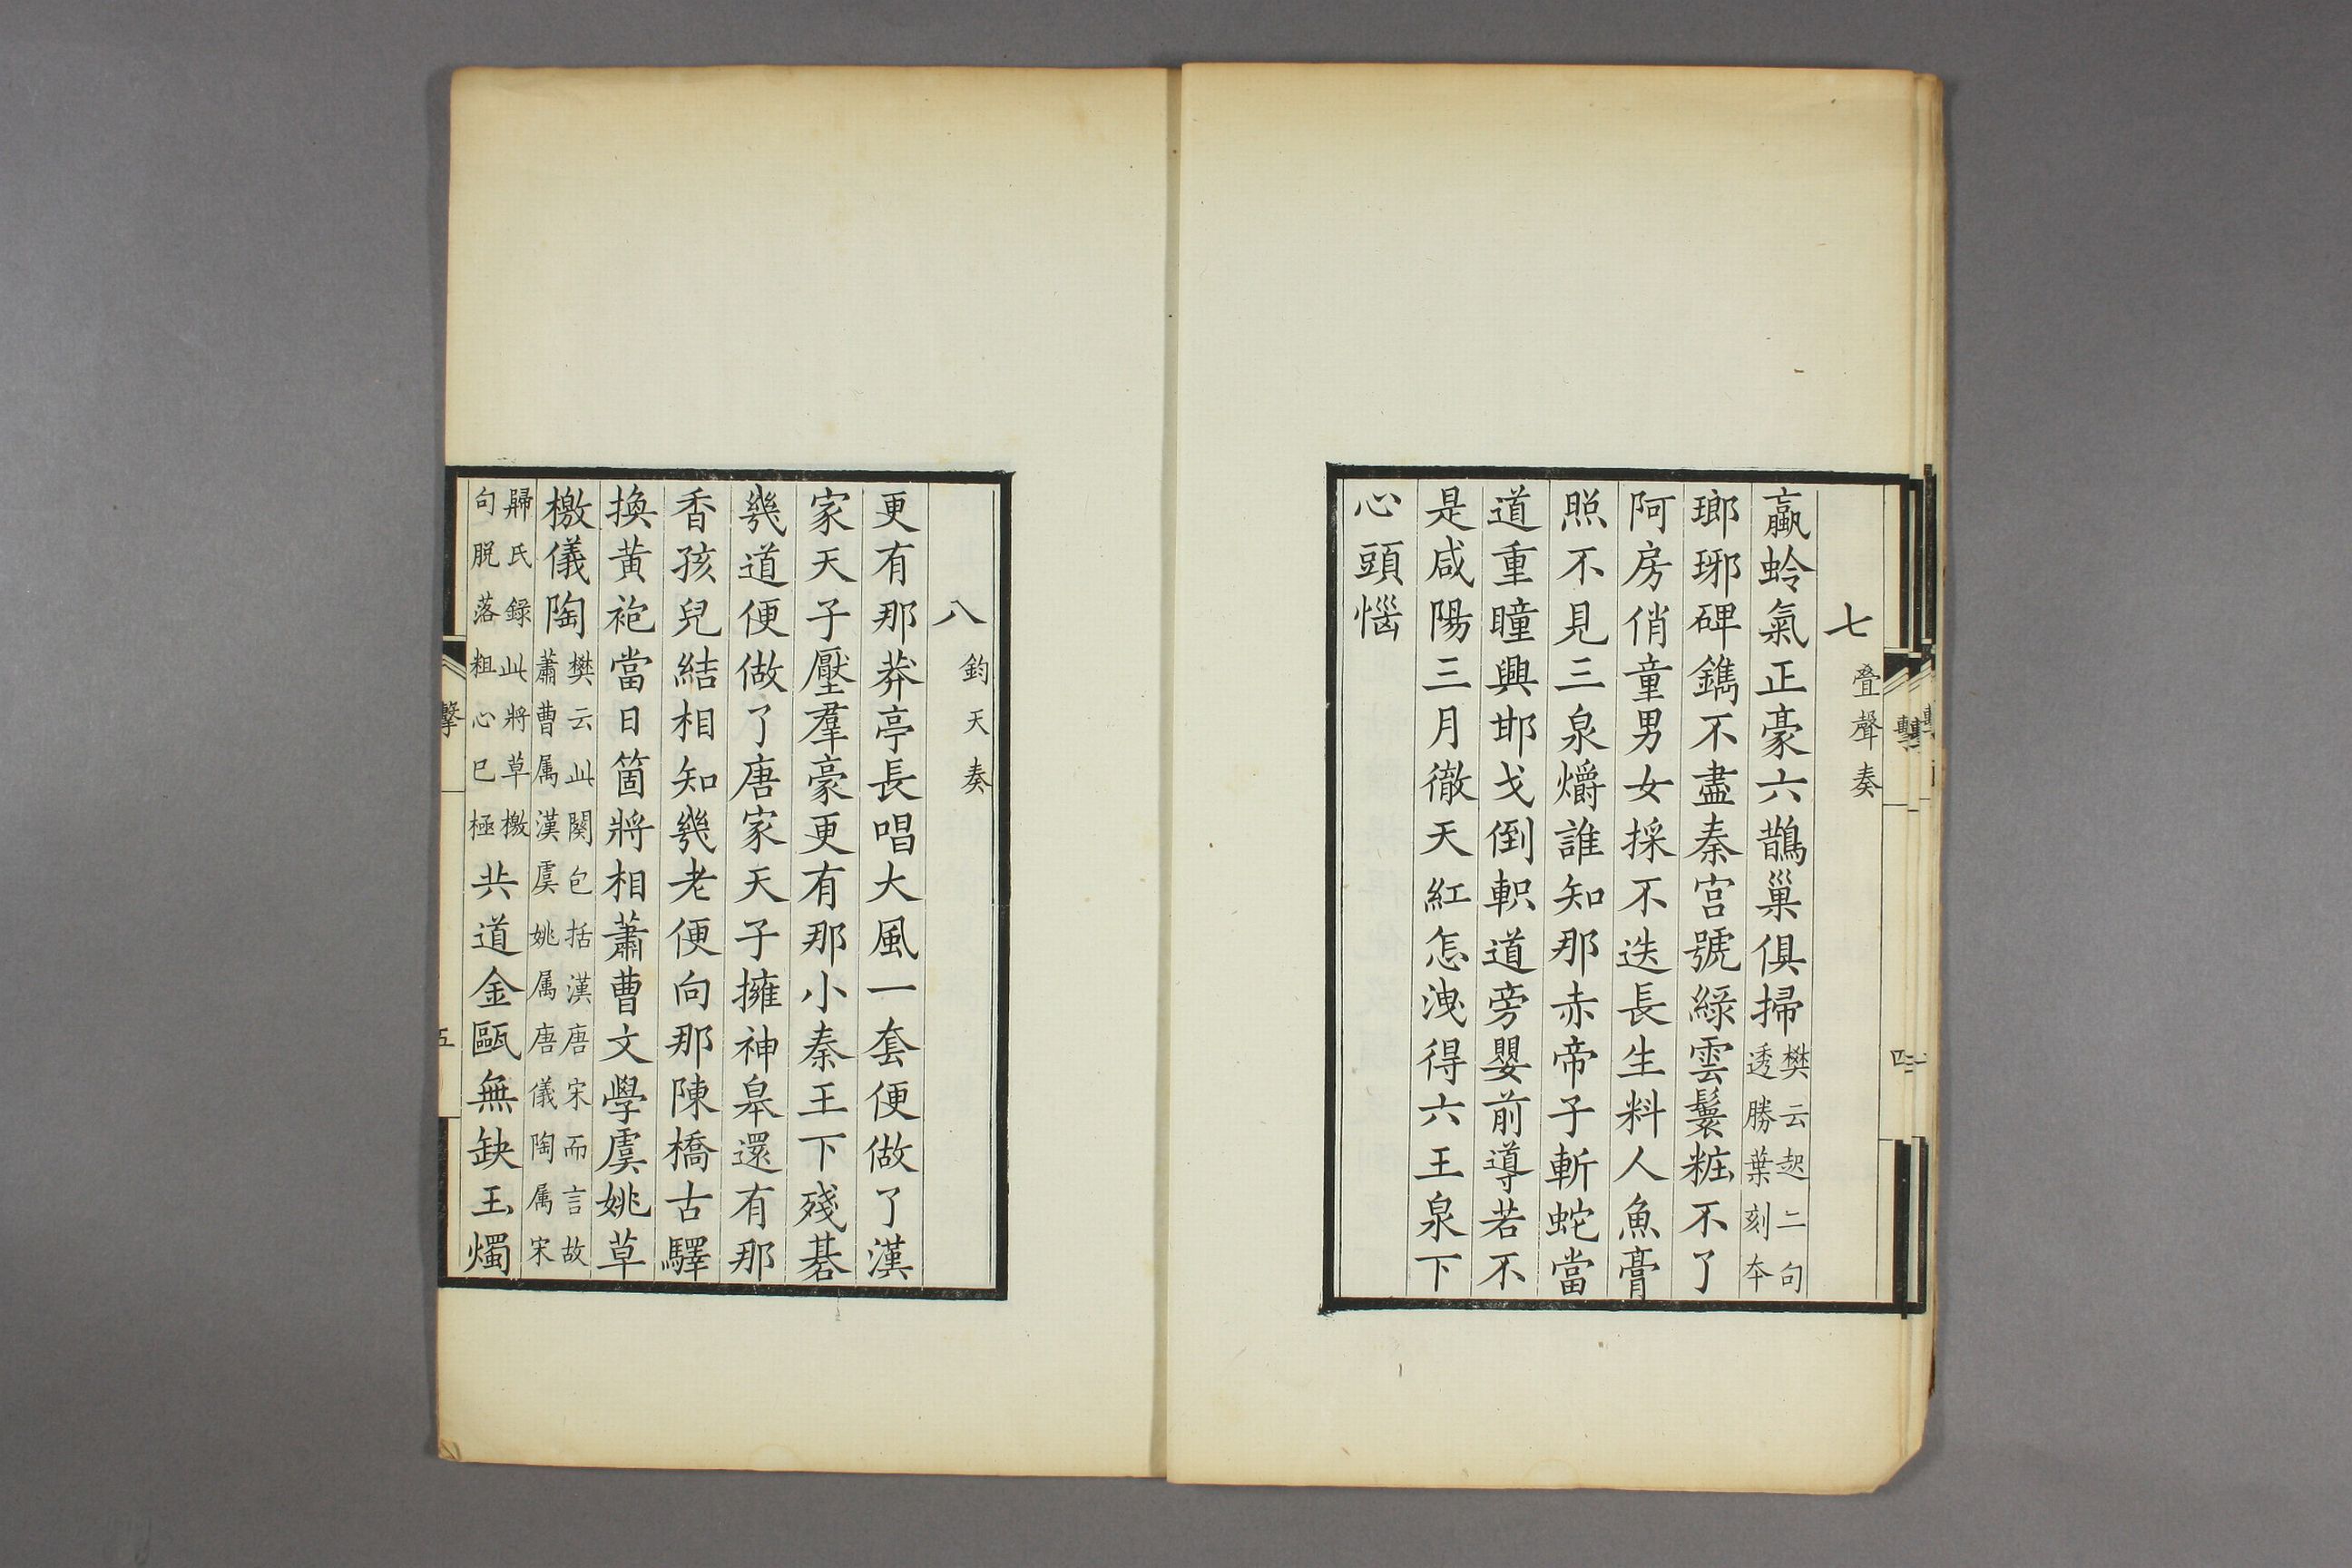 七 叠聲奏
嬴蛉氣正豪六鵲巢俱掃 樊云起二句
透勝葉刻夲
瑯琊碑鐫不盡秦宮號綠雲鬟粧不了
阿房俏童男女採不迭長生料人魚膏
照不見三泉爝誰知那赤帝子斬蛇當
道重瞳興邯戈倒軹道旁嬰前導若不
是咸陽三月徹天紅怎洩得六王泉下
心頭惱
八 鈞天奏
更有那莽亭長唱大風一套便做了漢
家天子壓羣豪更有那小秦王下殘碁
幾道便做了唐家天子擁神皋還有那
香孩兒結相知幾老便向那陳橋古驛
換黃袍當日箇將相蕭曹文學虞姚草
檄儀陶 樊云此闋包括漢唐宋而言故
蕭曹属漢虞姚属唐儀陶属宋
歸氏録此將草檄
句脱落粗心已極
共道金甌無缺玉燭
擊
五